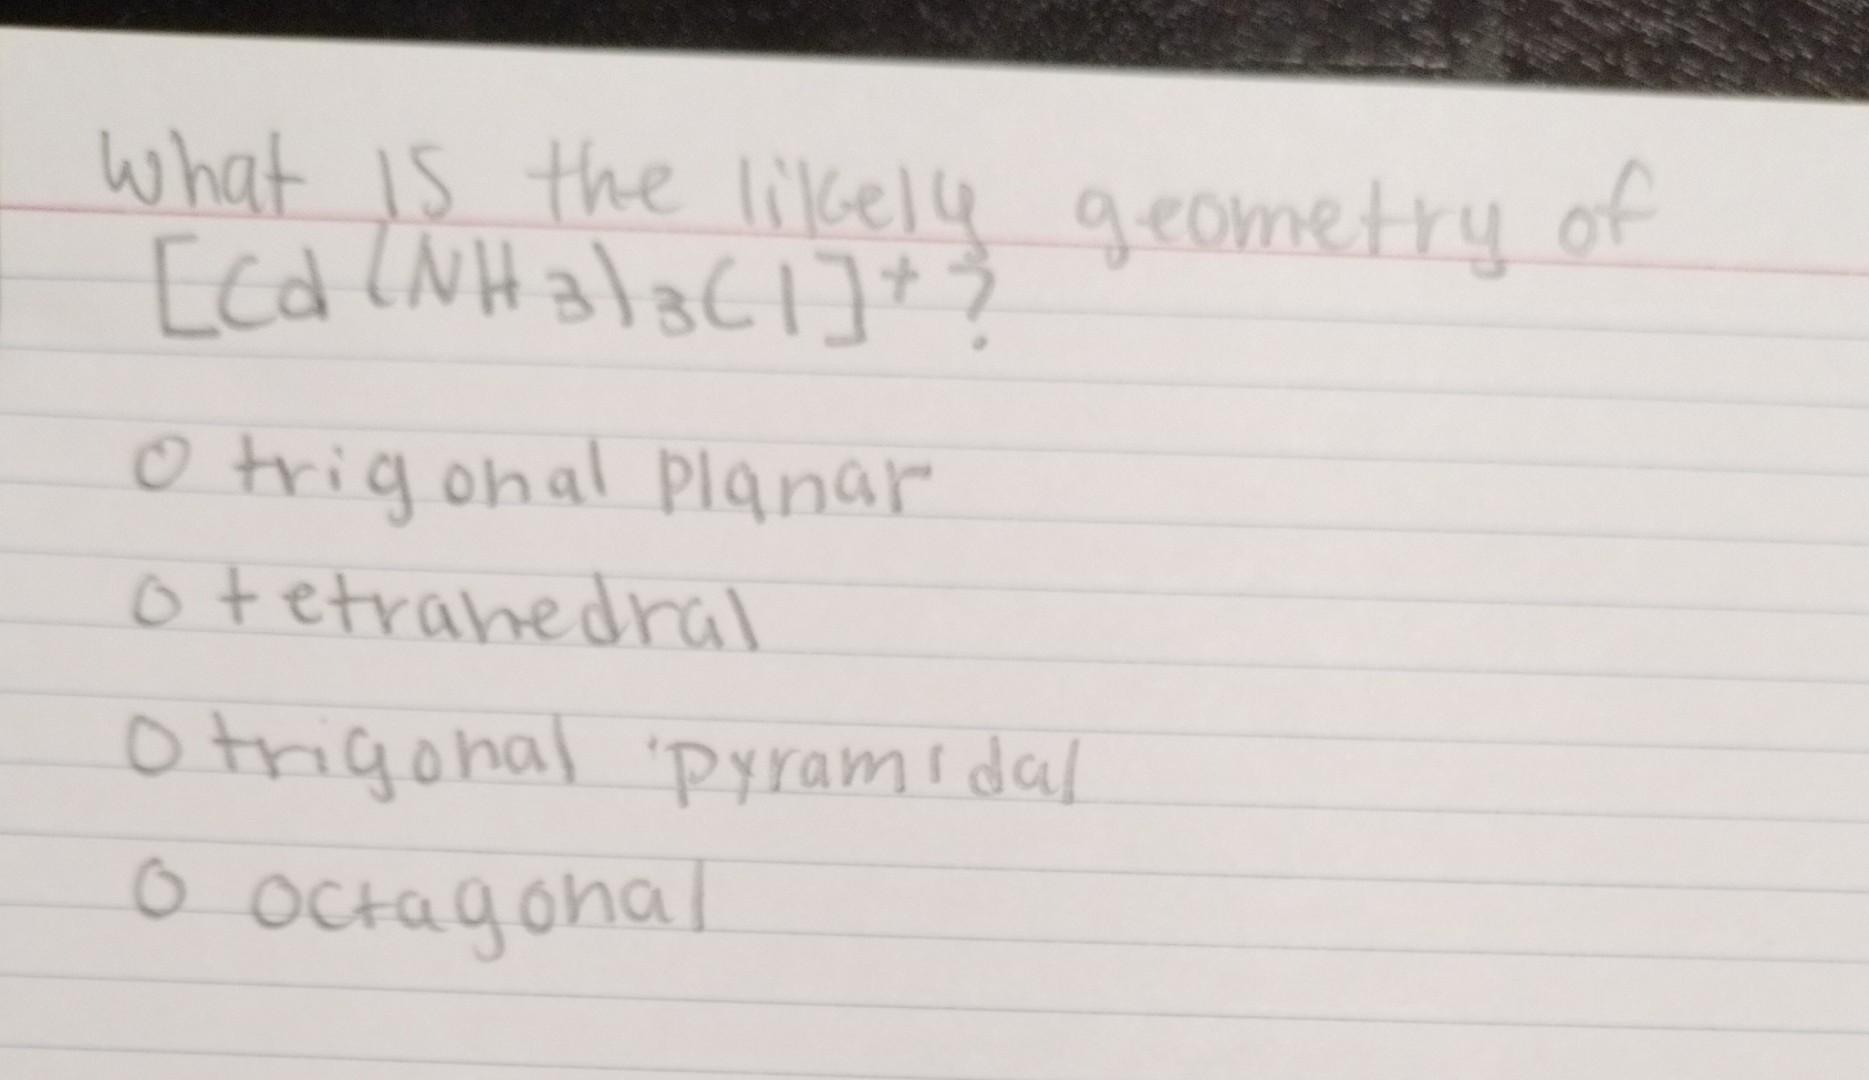 What is the likely geometry of
[Cd(NH3)3Cl]+?
O trigonal planar
O tetrahedral
O trigonal pyramidal
O octagonal